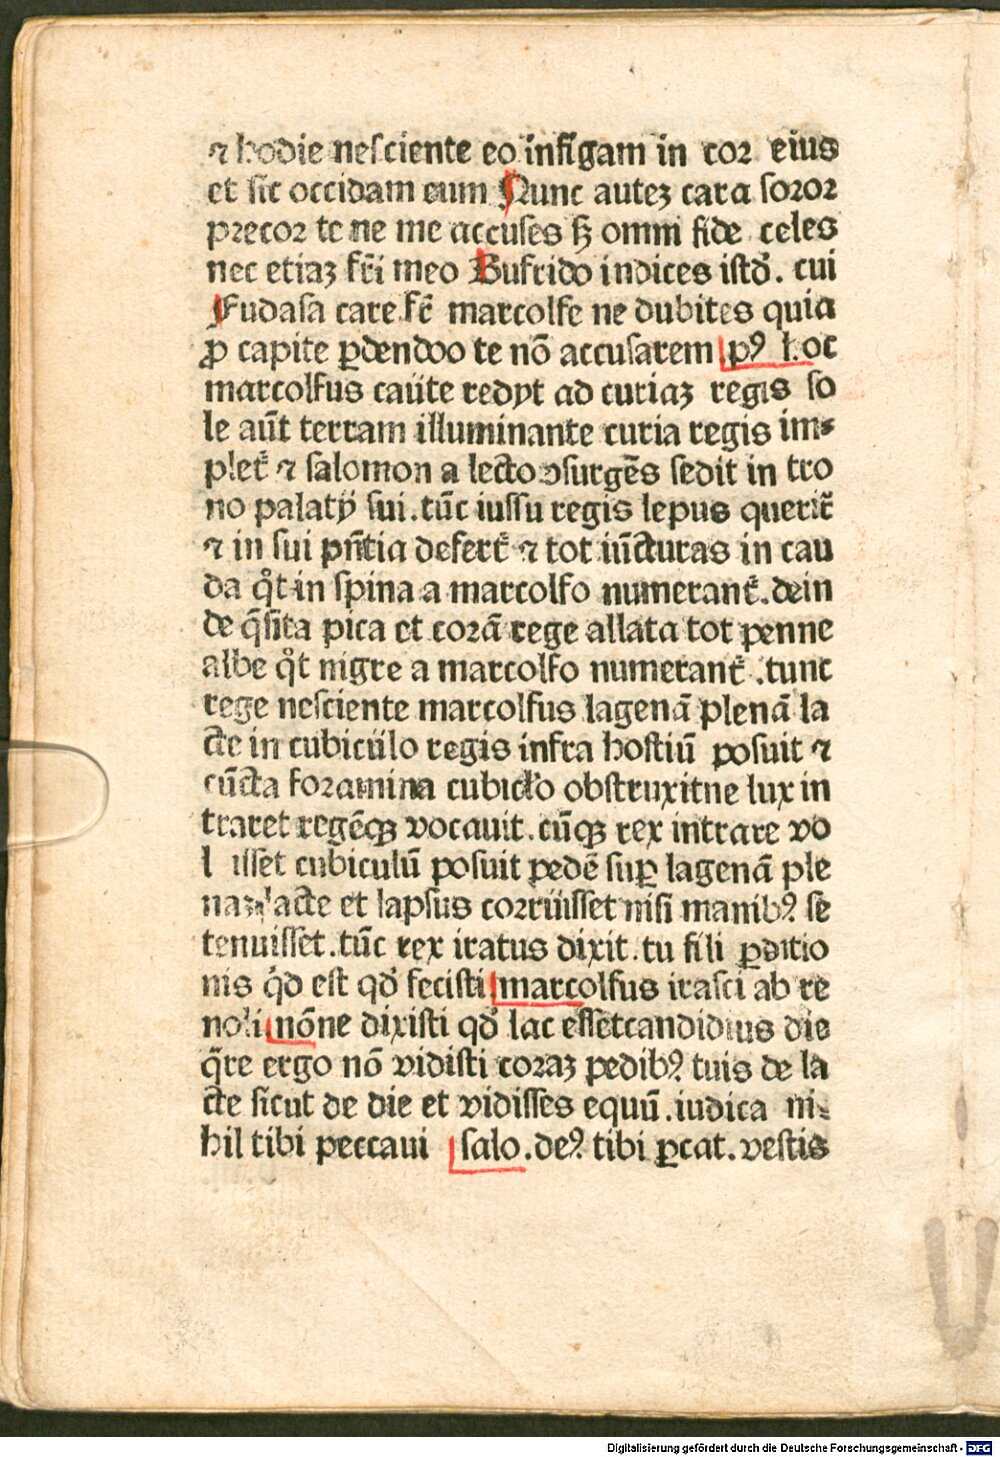 ⁊ hodie nesciente eo infigam in cor eius
et sic occidam eum Nunc auteꝫ cara soror
precor te ne me accuses sꝫ omni fide celes
nec etiaꝫ fr̄i meo Bufrido indices istđ. cui
Fudasa care fr̄ marcolfe ne dubites quia
ꝓ capite ꝑdendoo te nō accusarem pꝰ hoc
marcolfus caute redyt ad curiaꝫ regis so
le aūt terram illuminante curia regis im⸗
plet̄ ⁊ salomon a lecto ↄsurgēs sedit in tro
no palatÿ sui. tūc iussu regis lepus querit̄
⁊ in sui pn̄tia defert̄ ⁊ tot iūcturas in cau
da qͦt in spina a marcolfo numerant̄. dein
de q̄sita pica et corā rege allata tot penne
albe qͦt nigre a marcolfo numerant̄ .tunc
rege nesciente marcolfus lagenā plenā la
cte in cubiculo regis infra hostiū posuit ⁊
cūcta foramina cubicło obstruxitne lux in
traret regēqꝫ vocauit. cūqꝫ rex intrare vo
l isset cubiculū posuit pedē suꝑ lagenā ple
naꝫ lacte et lapsus corruisset nisi manibꝰ se
tenuisset. tūc rex iratus dixit. tu fili ꝑditio
nis qͥd est qđ fecisti marcolfus irasci ab re
noli nōne dixisti qđ lac essetcandidius die
q̄re ergo nō vidisti coraꝫ pedibꝰ tuis de la
cte sicut de die et vidisses equū. iudica ni⸗
hil tibi peccaui salo. deꝰ tibi ꝑcat. vestis
Digitalisierung gefördert durch die Deutsche Forschungsgemeinschaft - DFG